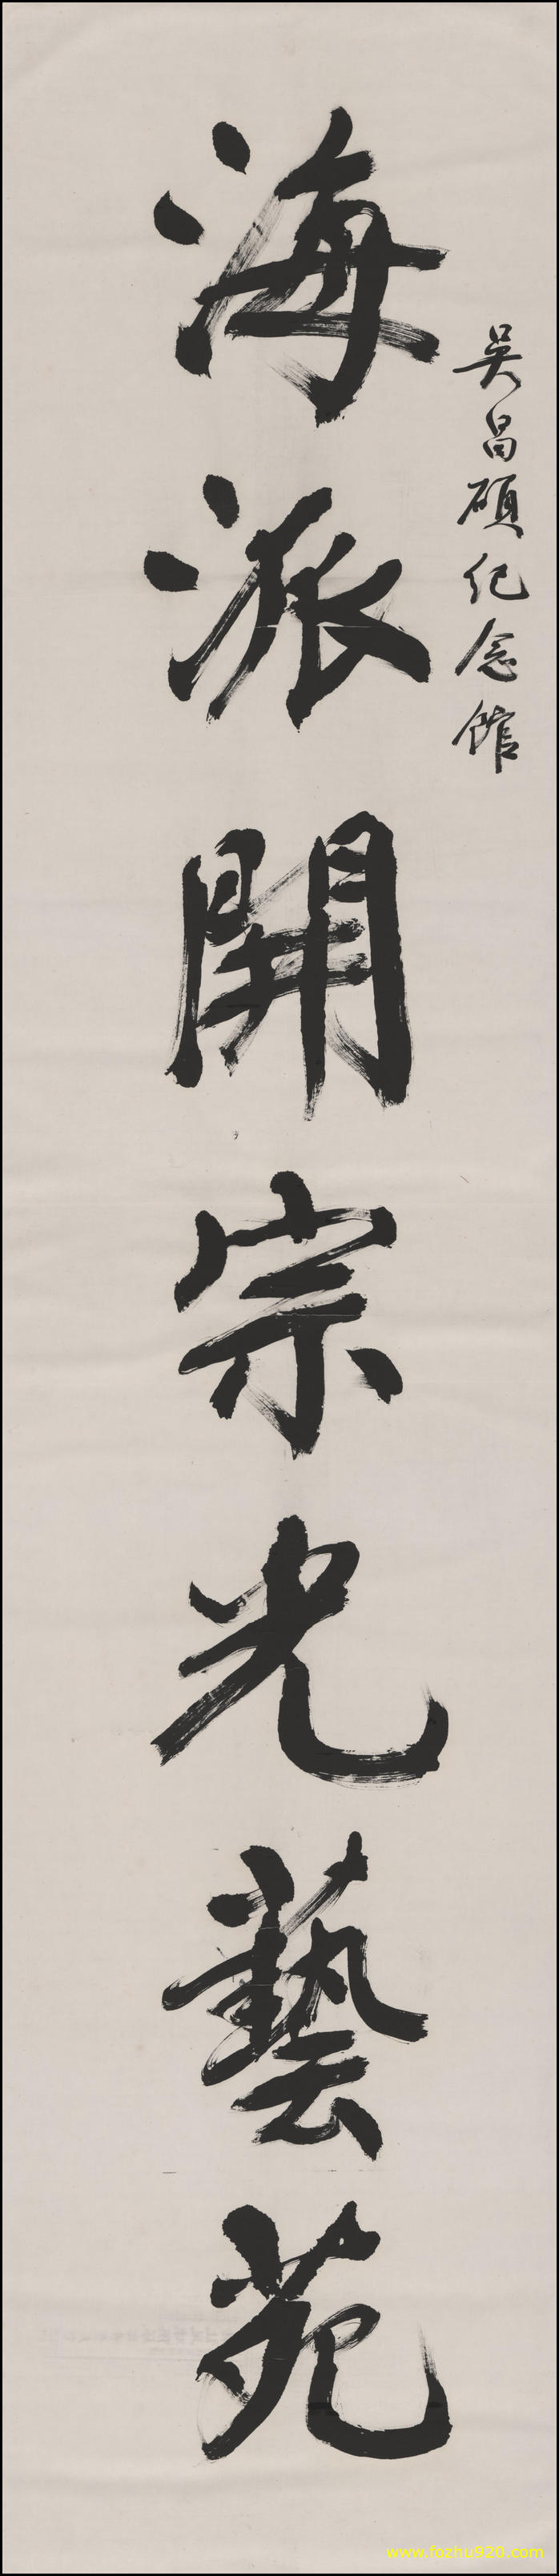 吳昌碩纪念馆
海派開宗光藝苑
www.fozhu920.com